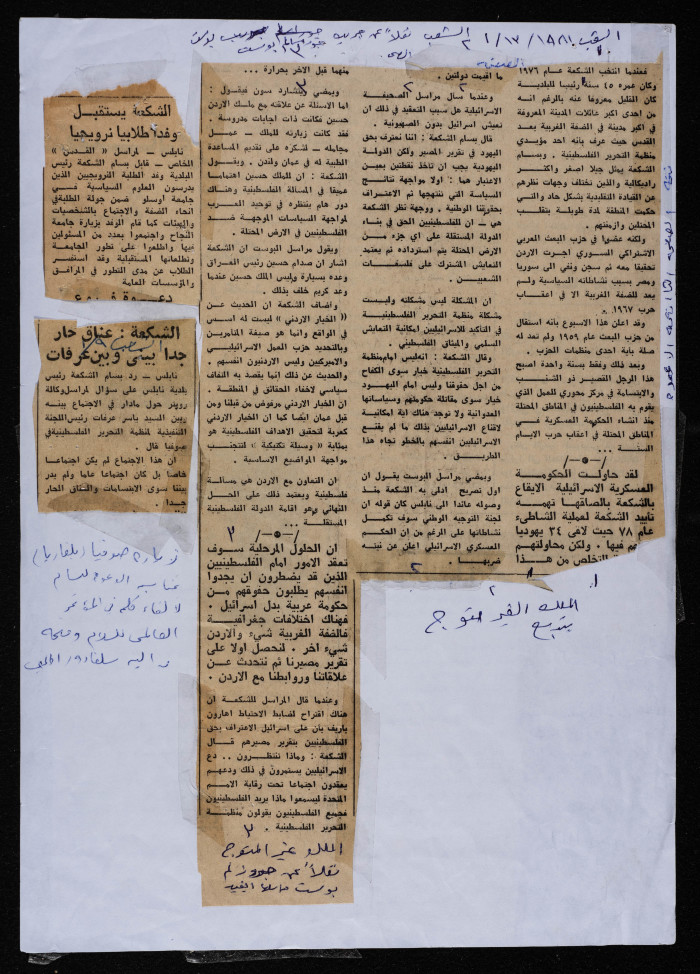 الشعب ١٩٨١/١٢/١ الشعب نقلاً عن جريدة جيروسالم بوست
الشكعة يستقبل
وفدا طلابيا نرويجيا
نابلس - لمراسل « القدس »
الخاص - قابل بسام الشكعة رئيس
بلدية وفد الطلبة النرويجيين الذين
يدرسون العلوم السياسية في
جامعة اوسلو ضمن جولة الطلبة في
انحاء الضفة والاجتماع بالشخصيات
والهيئات كما قام الوفد بزيارة جامعة
النجاح واجتمعوا بعدد من المسئولين
فيها واطلعوا على تطور الجامعة
وتطلعاتها المستقبلية وقد استفسر
الطلاب عن مدى التطور في المرافق
والمؤسسات العامة
الشكعة : عناق حار
جدا بيني وبين عرفات
نابلس - رد بسام الشكعة رئيس
بلدية نابلس على سؤال لمراسل وكالة
رويتر حول مادار في الاجتماع بينه
وبين السيد ياسر عرفات رئيس اللجنة
التنفيذية لمنظمة التحرير الفلسطينية في
صوفيا قال .
ان هذا الاجتماع لم يكن اجتماعا
خاصا بل كان اجتماعا عاما ولم يدر
بيننا سوى الابتسامات والعناق الحار
جدا .
زيارة صوفيا (بلغاريا)
لالقاء كلمة في المؤتمر
العالمي للسلام
فعندما انتخب الشكعة عام ١٩٧٦
وكان عمره ٤٥ سنة رئيسا للبلدية
كان القليل معروفا عنه بالرغم انه
من احدى اكبر عائلات المدينة المعروفة
في اكبر مدينة في الضفة الغربية بعد
القدس حيث عرف بانه احد مؤيدي
منظمة التحرير الفلسطينية . وبسام
الشكعة يمثل جيلا اصغر واكثر
راديكالية والذين تختلف وجهات نظرهم
عن القيادة التقليدية بشكل حاد والتي
حكمت المنطقة لمدة طويلة بتقلب
المحتلين وازمنتهم .
ولكنه عضوا في حزب البعث العربي
الاشتراكي السوري اجرت الاردن
تحقيقا معه ثم سجن ونفي الى سوريا
ومصر بسبب نشاطاته السياسية ولم
يعد للضفة الغربية الا في اعقاب
حرب ١٩٦٧ .
وقد اعلن هذا الاسبوع بانه استقال
من حزب البعث عام ١٩٥٩ ولم تعد له
صلة باية احدى منظمات الحزب .
وبعد ذلك وفقط بسنة واحدة اصبح
هذا الرجل القصير ذو الشنب
والابتسامة في مركز محوري للعمل الذي
يقوم به الفلسطينيون في المناطق المحتلة
منذ انشاء الحكيمة العسكرية في
المناطق المحتلة في اعقاب حرب الايام
الستة .
لقد حاولت الحكومة
العسكرية الاسرائيلية الايقاع
بالشكعة بالصاقها تهمة
تأييد الشكعة لعملية الشاطىء
عام ٧٨ حيث لاقى ٣٤ يهوديا
حتفهم فيها . ولكن محاولتهم
للتخلص من هذا
ما اقيمت دولتين .
وعندما سأل مراسل الصحيفة
الاسرائيلية هل سبب التعقيد في ذلك ان
نعيش اسرائيل بدون الصهيونية .
قال بسام الشكعة : اننا نعترف بحق
اليهود في تقرير المصير ولكن الدولة
اليهودية يجب ان تاخذ نقطتين بعين
الاعتبار هما : اولا مواجهة نتائج
السياسة التي تنتهجها ثم الاعتراف
بحقوقنا الوطنية . ووجهة نظر الشكعة
هي - ان للفلسطينيين الحق في بناء
الدولة المستقلة على اي جزء من
الارض المحتلة يتم استرداده ثم يعتمد
التعايش المشترك على فلسفات
الشعبين .
ان المشكلة ليس مشكلته وليست
مشكلة منظمة التحرير الفلسطينية
في التأكيد للاسرائيليين امكانية التعايش
السلمي والميثاق الفلسطيني .
وقال الشكعة : انه ليس امام منظمة
التحرير الفلسطينية خيار سوى الكفاح
من اجل حقوقنا وليس امام اليهود
خيار سوى مقاتلة حكومتهم وسياساتها
العدوانية ولا توجد هناك اية امكانية
لاقناع الاسرائيليين بذلك ما لم يقتنع
الاسرائيليين انفسهم بالخطو تجاه هذا
الطريق .
ويمضي مراسل البوست يقول ان
اول تصريح ادلى به الشكعة منذ
وصوله عائدا الى نابلس كان قوله ان
لجنة التوجيه الوطني سوف تكمل
نشاطاتها على الرغم من ان الحكم
العسكري الاسرائيلي اعلن عن نيته
ضربها .
منهما قبل الآخر بحرارة ...
ويمضي ريتشارد سون فيقول :
اما الاسئلة عن علاقته مع ملك الاردن
حسين فكانت ذات اجابات مدروسة .
فقد كانت زيارته للملك - عمل
مجاملة - لشكره على تقديم المساعدة
الطبية له في عمان ولندن . ويقول
الشكعة : ان للملك حسين اهتماما
عميقا في المسالة الفلسطينية وهناك
دور هام ينتظره في توحيد العرب
لمواجهة السياسات الموجهة ضد
الفلسطينيين في الارض المحتلة .
ويقول مراسل البوست ان الشكعة
اشار ان صدام حسين رئيس العراق
وعده بسيارة وليس الملك حسين عندما
وعد كريم خلف بذلك .
واضاف الشكعة ان الحديث عن
(( الخيار الاردني )) ليست له اسس
في الواقع وانما هو صيغة المتآمرين
وبالتحديد حزب العمل الاسرائيلي
والاميركيين وليس الاردنيون انفسهم .
والحديث عن ذلك انما يقصد به التفاف
سياسي لاخفاء الحقائق في المنطقة .
ان الخيار الاردني مرفوض من قبلنا ومن
قبل عمان ايضا كما ان الخيار الاردني
كعربة لتحقيق الاهداف الفلسطينية هو
بمثابة « وسيلة تكتيكية » لتتجنب
مواجهة المواضيع الاساسية .
ان التعاون مع الاردن هي مسالة
فلسطينية ويعتمد ذلك على الحل
النهائي وهو اقامة الدولة الفلسطينية
المستقلة ...
ان الحلول المرحلية سوف
تعقد الامور امام الفلسطينيين
الذين قد يضطرون ان يجدوا
انفسهم يطلبون حقوقهم من
حكومة عربية بدل اسرائيل .
فهناك اختلافات جغرافية
فالضفة الغربية شيء والاردن
شيء اخر . لنحصل اولا على
تقرير مصيرنا ثم نتحدث عن
علاقاتنا وروابطنا مع الاردن .
وعندما قال المراسل للشكعة ان
هناك اقتراح لضابط الاحتياط اهارون
ياريف بأن على اسرائيل الاعتراف بحق
الفلسطينيين بتقرير مصيرهم قال
الشكعة : وماذا ننتظرون .. دع
الاسرائيليين يستمرون في ذلك ودعهم
يعقدون اجتماعا تحت رقابة الامم
المتحدة ليسمعوا ماذا يريد الفلسطينيون
فجميع الفلسطينيون يقولون منظمة
التحرير الفلسطينية .
الملك غير المتوج
نقلاً عن جيروزالم
بوست
الملك الغير متوج
يتبع